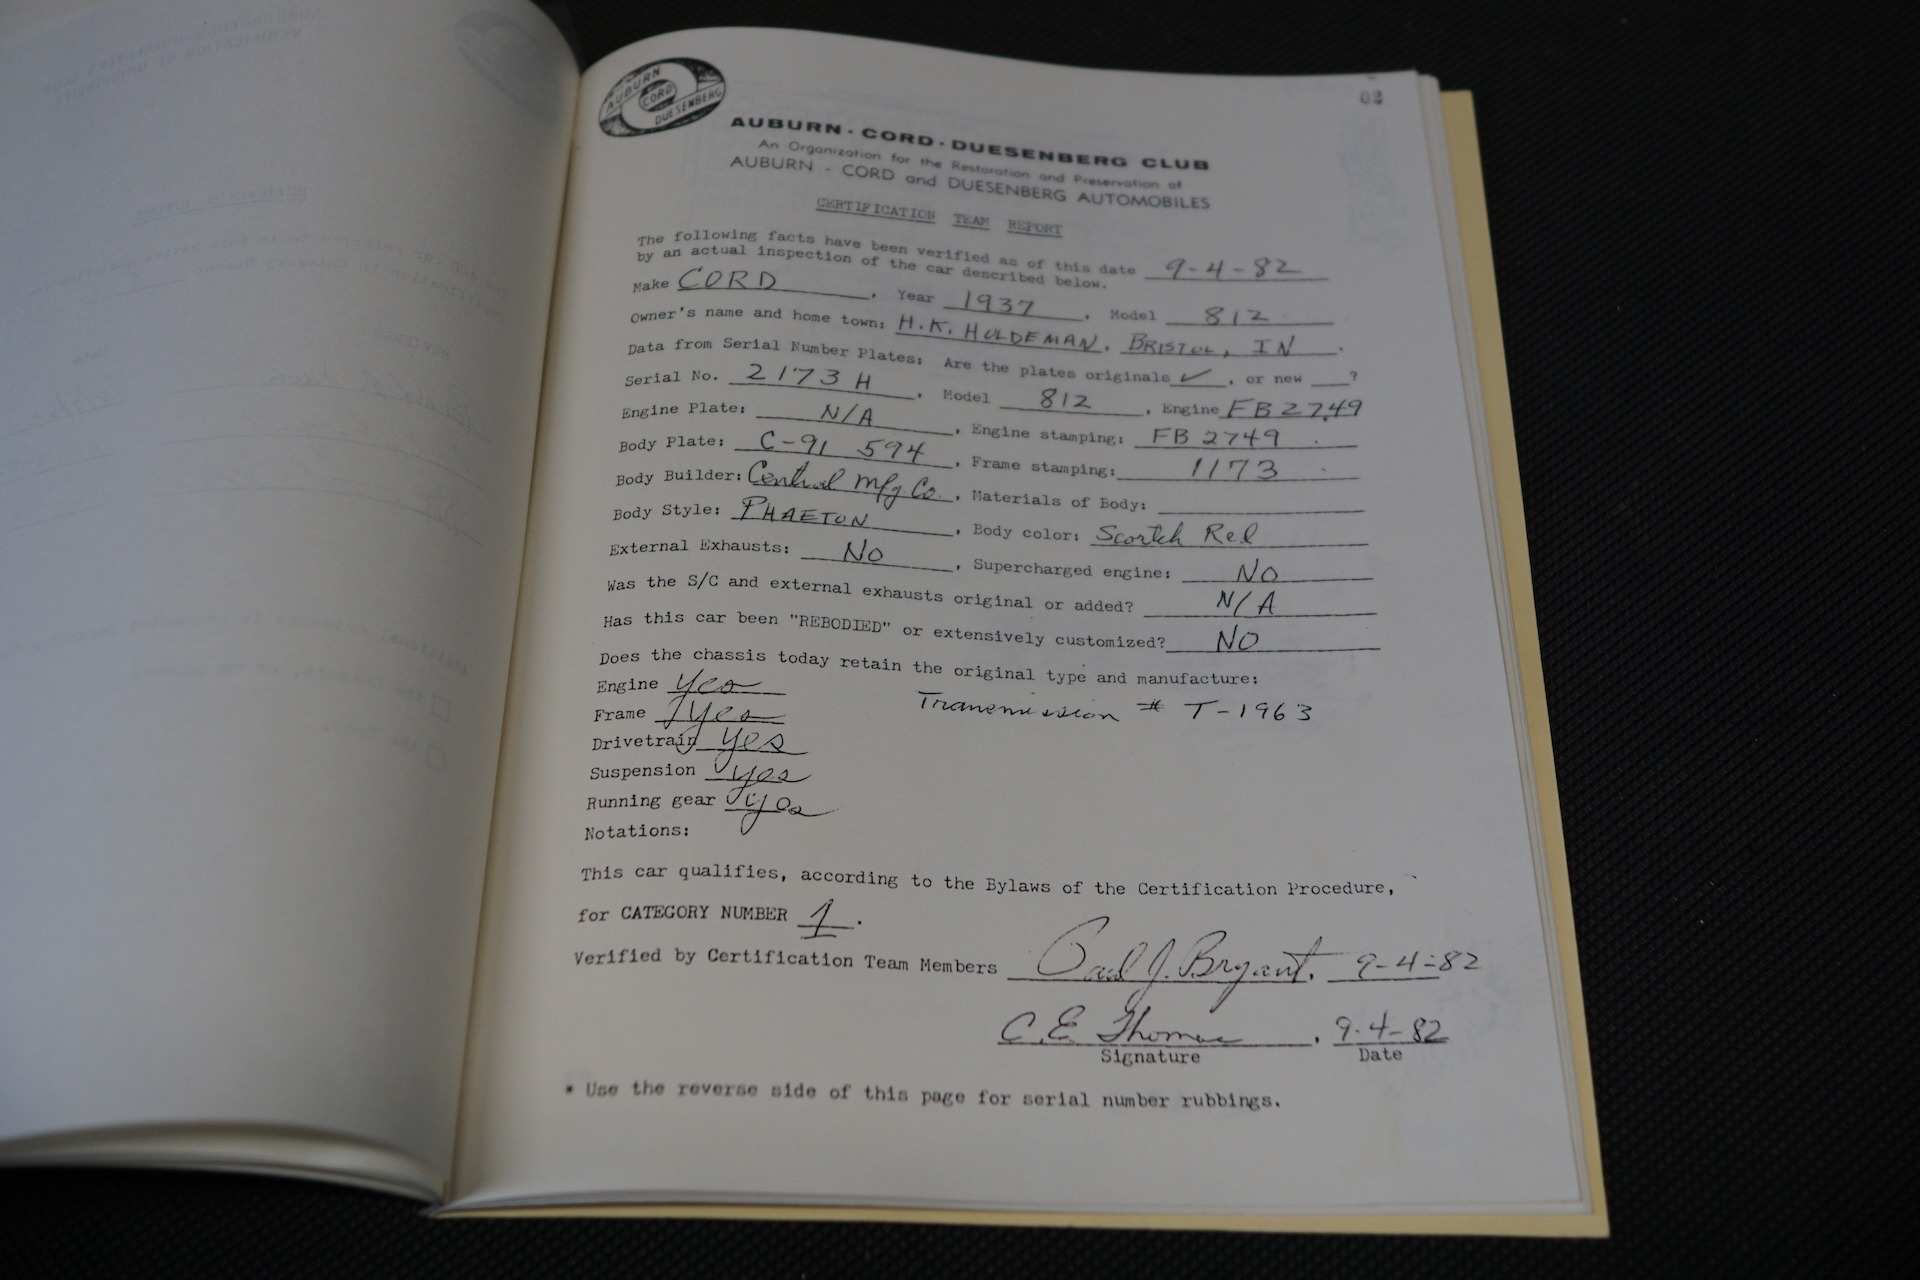 AUBURN
CORD
DUESENBERG
02
AUBURN · CORD · DUESENBERG CLUB
An Organization for the Restoration and Preservation of
AUBURN - CORD and DUESENBERG AUTOMOBILES
CERTIFICATION TEAM REPORT
The following facts have been verified as of this date 9-4-82
by an actual inspection of the car described below.
Make CORD, Year 1937, Model 812
Owner's name and home town: H.K. HOLDEMAN. BRISTOL, IN.
Data from Serial Number Plates: Are the plates originals ✓, or new ___?
Serial No. 2173 H, Model 812, Engine FB 2749
Engine Plate: N/A, Engine stamping: FB 2749.
Body Plate: C-91 594, Frame stamping: 1173.
Body Builder: Central Mfg. Co., Materials of Body:
Body Style: PHAETON, Body color: Scortch Red
External Exhausts: No, Supercharged engine: NO
Was the S/C and external exhausts original or added? N/A
Has this car been "REBODIED" or extensively customized? NO
Does the chassis today retain the original type and manufacture:
Engine yes
Transmission # T-1963
Frame yes
Drivetrain yes
Suspension yes
Running gear yes
Notations:
This car qualifies, according to the Bylaws of the Certification Procedure,
for CATEGORY NUMBER 1.
Verified by Certification Team Members Paul J. Bryant, 9-4-82
C.E. Thomas, 9-4-82
Signature Date
* Use the reverse side of this page for serial number rubbings.